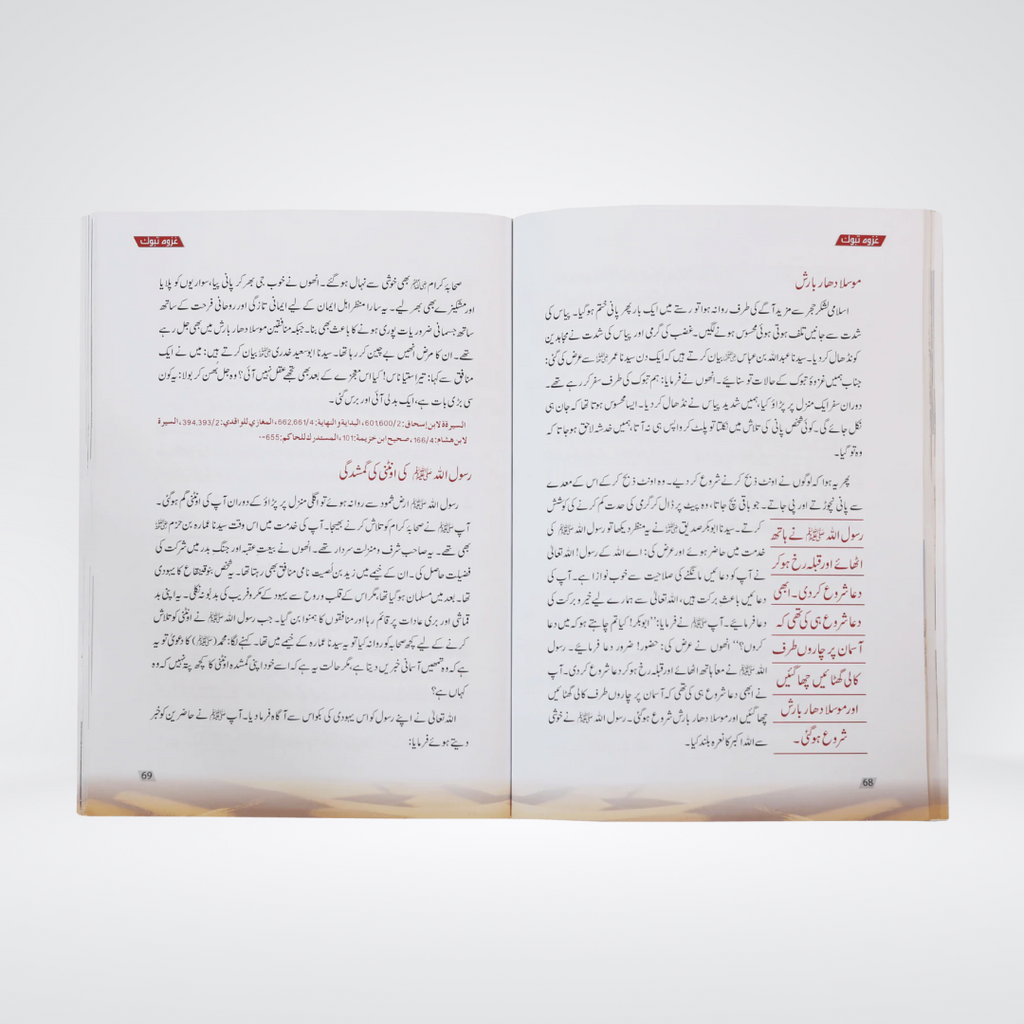 غزوہ تبوک
موسلا دھار بارش
اسلامی لشکر حجر سے مزید آگے کی طرف روانہ ہوا تو رستے میں ایک بار پھر پانی ختم ہو گیا۔ پیاس کی
شدت سے جانیں تلف ہوتی ہوئی محسوس ہونے لگیں۔ غضب کی گرمی اور پیاس کی شدت نے مجاہدین
کو نڈھال کر دیا۔ سیدنا عبداللہ بن عباس رضی اللہ عنہما بیان کرتے ہیں کہ ایک دن سیدنا عمر رضی اللہ عنہ سے عرض کی گئی:
جناب ہمیں غزوۂ تبوک کے حالات تو سنائیے۔ انھوں نے فرمایا: ہم تبوک کی طرف سفر کر رہے تھے۔
دوران سفر ایک منزل پر پڑاؤ کیا، ہمیں شدید پیاس نے نڈھال کر دیا۔ ایسا محسوس ہوتا تھا کہ جان ہی
نکل جائے گی۔ کوئی شخص پانی کی تلاش میں نکلتا تو پلٹ کر واپس ہی نہ آتا، ہمیں خدشہ لاحق ہو جاتا کہ
وہ تو گیا۔
پھر یہ ہوا کہ لوگوں نے اونٹ ذبح کرنے شروع کر دیے۔ وہ اونٹ ذبح کر کے اس کے معدے
سے پانی نچوڑتے اور پی جاتے۔ جو باقی بچ جاتا، وہ پیٹ پر ڈال کر گرمی کی حدت کم کرنے کی کوشش
کرتے۔ سیدنا ابوبکر صدیق رضی اللہ عنہ نے یہ منظر دیکھا تو رسول اللہ ﷺ کی
خدمت میں حاضر ہوئے اور عرض کی: اے اللہ کے رسول! اللہ تعالیٰ
نے آپ کو دعائیں مانگنے کی صلاحیت سے خوب نوازا ہے۔ آپ کی
دعائیں باعث برکت ہیں، اللہ تعالیٰ سے ہمارے لیے خیر و برکت کی
دعا فرمائیے۔ آپ ﷺ نے فرمایا: ”ابوبکر! کیا تم چاہتے ہو کہ میں دعا
کروں؟“ انھوں نے عرض کی: حضور! ضرور دعا فرمائیے۔ رسول
اللہ ﷺ نے معاً ہاتھ اٹھائے اور قبلہ رخ ہو کر دعا شروع کر دی۔ آپ
نے ابھی دعا شروع ہی کی تھی کہ آسمان پر چاروں طرف کالی گھٹائیں
چھا گئیں اور موسلا دھار بارش شروع ہو گئی۔ رسول اللہ ﷺ نے خوشی
سے اللہ اکبر کا نعرہ بلند کیا۔
رسول اللہ ﷺ نے ہاتھ
اٹھائے اور قبلہ رخ ہو کر
دعا شروع کر دی۔ ابھی
دعا شروع ہی کی تھی کہ
آسمان پر چاروں طرف
کالی گھٹائیں چھا گئیں
اور موسلا دھار بارش
شروع ہو گئی۔
68
غزوہ تبوک
صحابۂ کرام رضی اللہ عنہم بھی خوشی سے نہال ہو گئے۔ انھوں نے خوب جی بھر کر پانی پیا، سواریوں کو پلایا
اور مشکیزے بھی بھر لیے۔ یہ سارا منظر اہل ایمان کے لیے ایمانی تازگی اور روحانی فرحت کے ساتھ
ساتھ جسمانی ضروریات پوری ہونے کا باعث بھی بنا۔ جبکہ منافقین موسلا دھار بارش میں بھی جل رہے
تھے۔ ان کا مرض انھیں بے چین کر رہا تھا۔ سیدنا ابوسعید خدری رضی اللہ عنہ بیان کرتے ہیں: میں نے ایک
منافق سے کہا: تیرا ستیاناس! کیا اس معجزے کے بعد بھی تجھے عقل نہیں آئی؟ وہ جل بھُن کر بولا: یہ کون
سی بڑی بات ہے، ایک بدلی آئی اور برس گئی۔
السيرة لابن إسحاق: 601,600/2، البداية والنهاية: 662,661/4، المغازي للواقدي: 394,393/2، السيرة
لابن هشام: 166/4، صحيح ابن خزيمة: 101، المستدرك للحاكم: 655--
رسول اللہ ﷺ کی اونٹنی کی گمشدگی
رسول اللہ ﷺ ارض ثمود سے روانہ ہوئے تو اگلی منزل پر پڑاؤ کے دوران آپ کی اونٹنی گم ہو گئی۔
آپ ﷺ نے صحابہ کرام کو تلاش کرنے بھیجا۔ آپ کی خدمت میں اس وقت سیدنا عمارہ بن حزم رضی اللہ عنہ
بھی تھے۔ یہ صاحب شرف و منزلت سردار تھے۔ انھوں نے بیعت عقبہ اور جنگ بدر میں شرکت کی
فضیلت حاصل کی۔ ان کے خیمے میں زید بن لُصیت نامی منافق بھی رہتا تھا۔ یہ شخص بنو قینقاع کا یہودی
تھا۔ بعد میں مسلمان ہو گیا تھا، مگر اس کے قلب و روح سے یہود کے مکر و فریب کی بدبو نہ نکلی۔ یہ اپنی بد
قماشی اور بری عادات پر قائم رہا اور منافقوں کا ہمنوا بن گیا۔ جب رسول اللہ ﷺ نے اونٹنی کو تلاش
کرنے کے لیے کچھ صحابہ کو روانہ کیا تو یہ سیدنا عمارہ کے خیمے میں تھا۔ کہنے لگا: محمد (ﷺ) کا دعویٰ تو یہ
ہے کہ وہ تمھیں آسمانی خبریں دیتا ہے، مگر حالت یہ ہے کہ اسے خود اپنی گمشدہ اونٹنی کا کچھ پتہ نہیں کہ وہ
کہاں ہے؟
اللہ تعالیٰ نے اپنے رسول کو اس یہودی کی بکواس سے آگاہ فرما دیا۔ آپ ﷺ نے حاضرین کو خبر
دیتے ہوئے فرمایا:
69